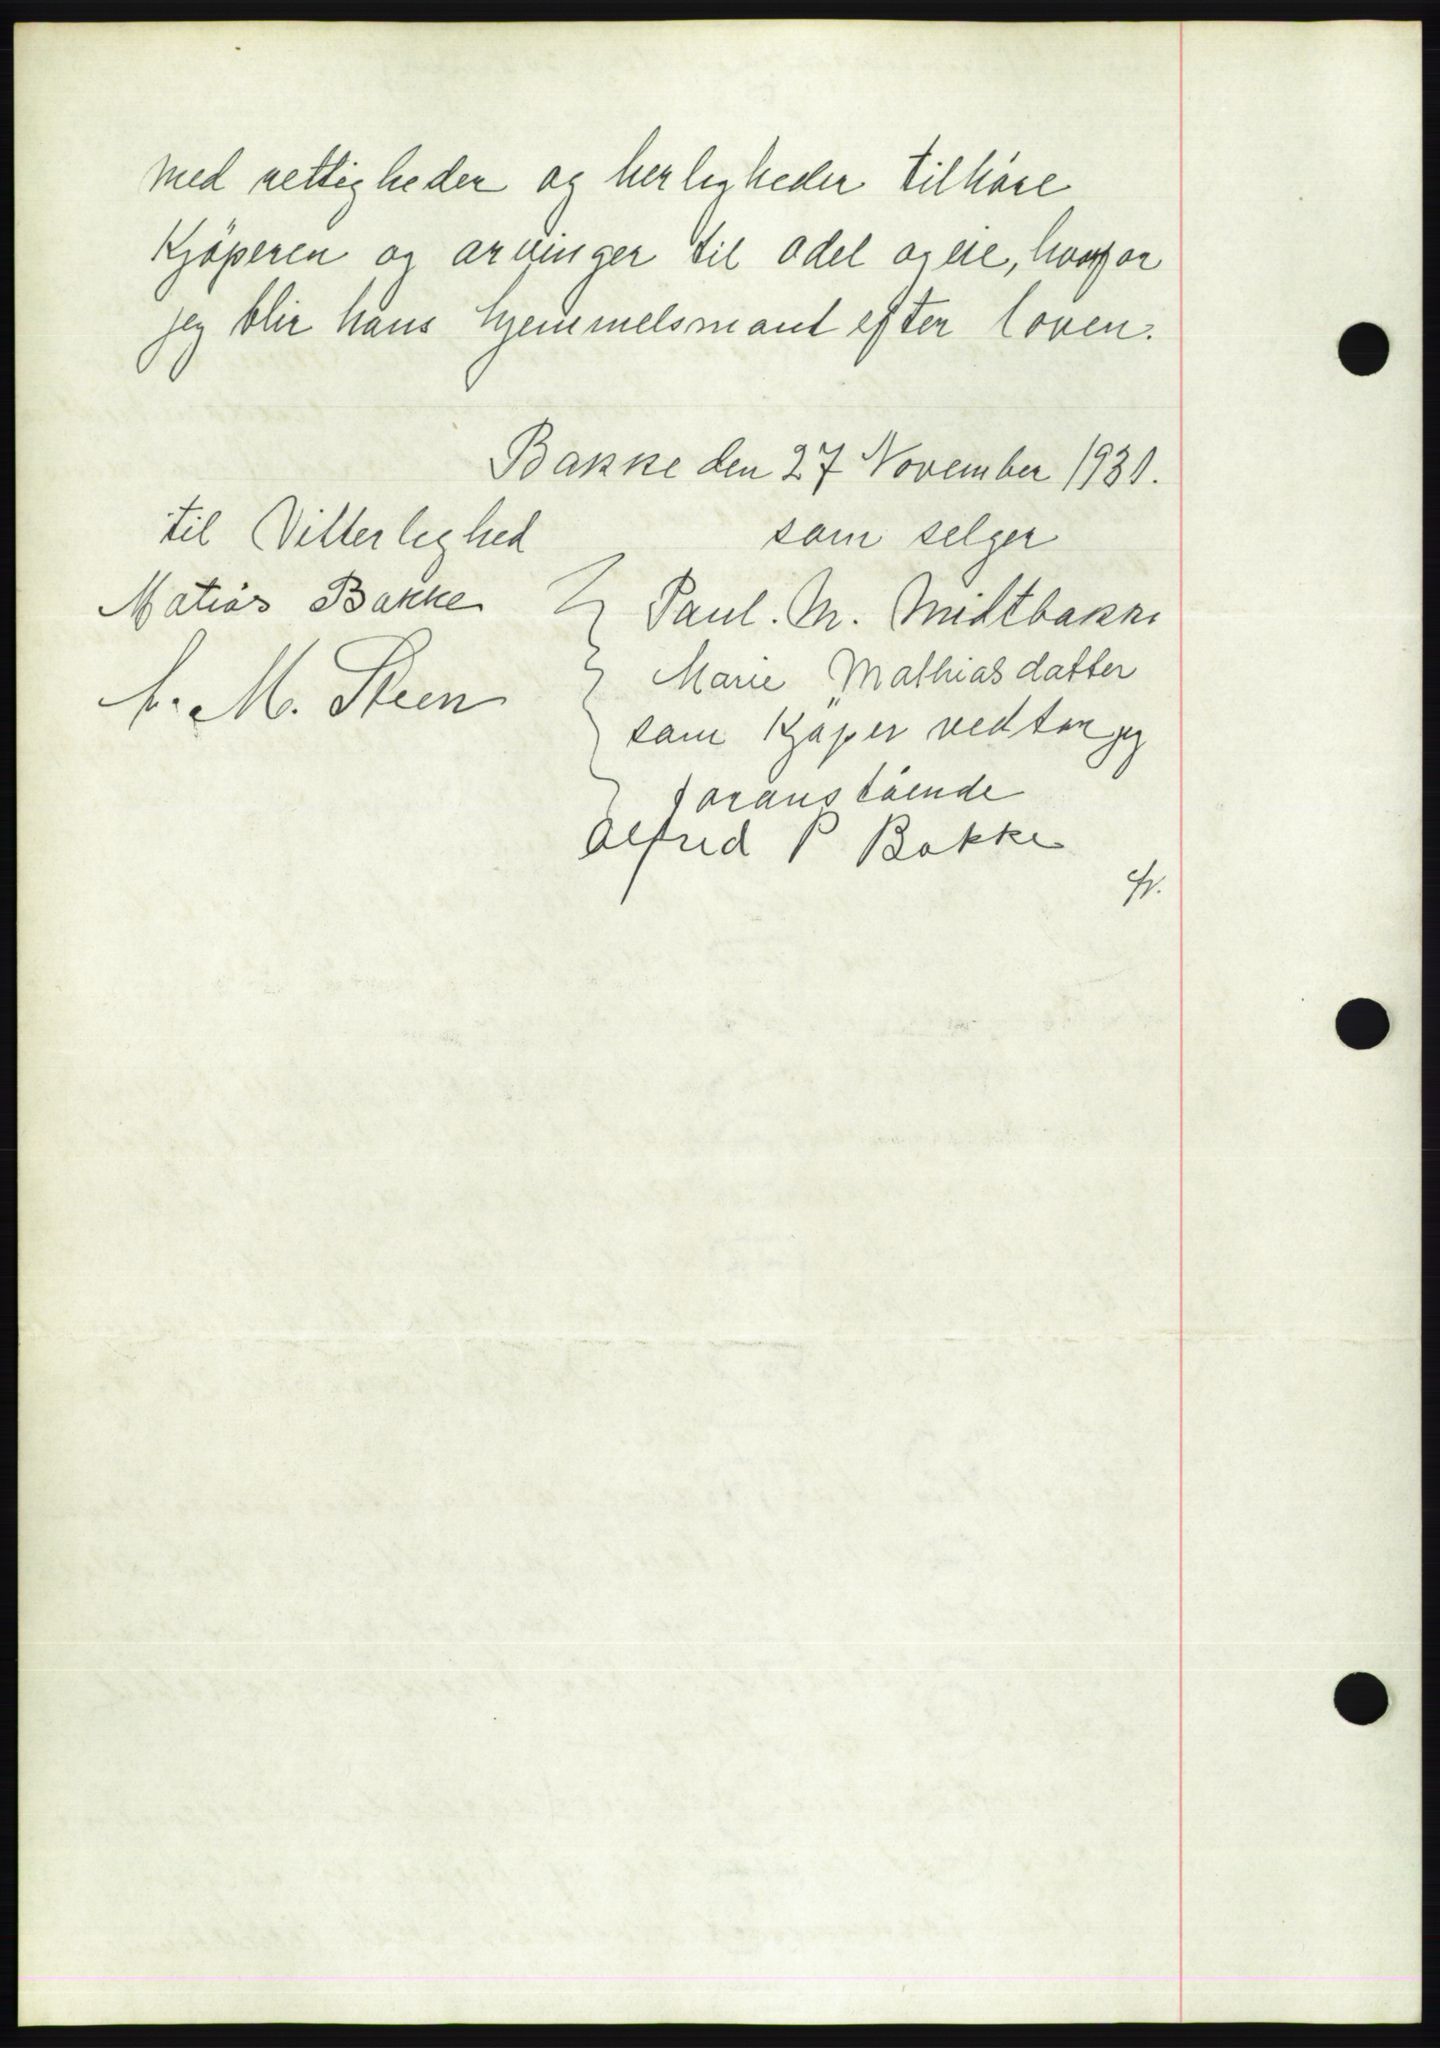 med rettigheder og herligheder tilhöre
Kjöperen og arvinger til odel og eie, hvorfor
jeg blir hans hjemmelsmand efter loven.
Bakke den 27 November 1931.
til Vitterlighed
som selger
Matias Bakke
Paul. M. Midtbakke
M. Steen
Marie Mathiasdatter
som Kjøper vedtar jeg
foranstående
Alfred P Bakke